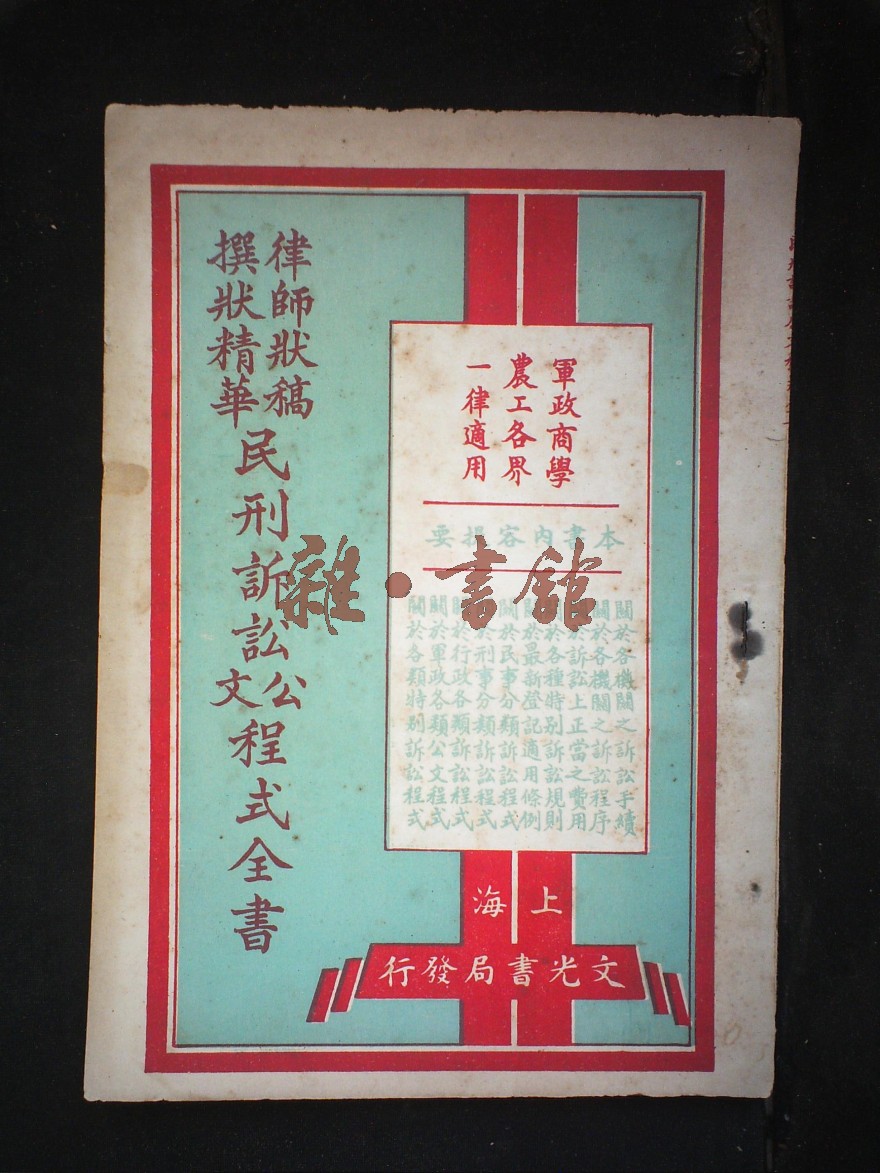 律師狀稿
撰狀精華
民刑訴訟公文程式全書
軍政商學
農工各界
一律適用
本書內容提要
關於各機關之訴訟手續
關於各機關之訴訟程序
關於訴訟上正當之費用
關於各種特别訴訟規則
關於最新登記適用條例
關於民事分類訴訟程式
關於刑事分類訴訟程式
關於行政各類訴訟程式
關於軍政各類公文程式
關於各類特别訴訟程式
上海
文光書局發行
雜·書館